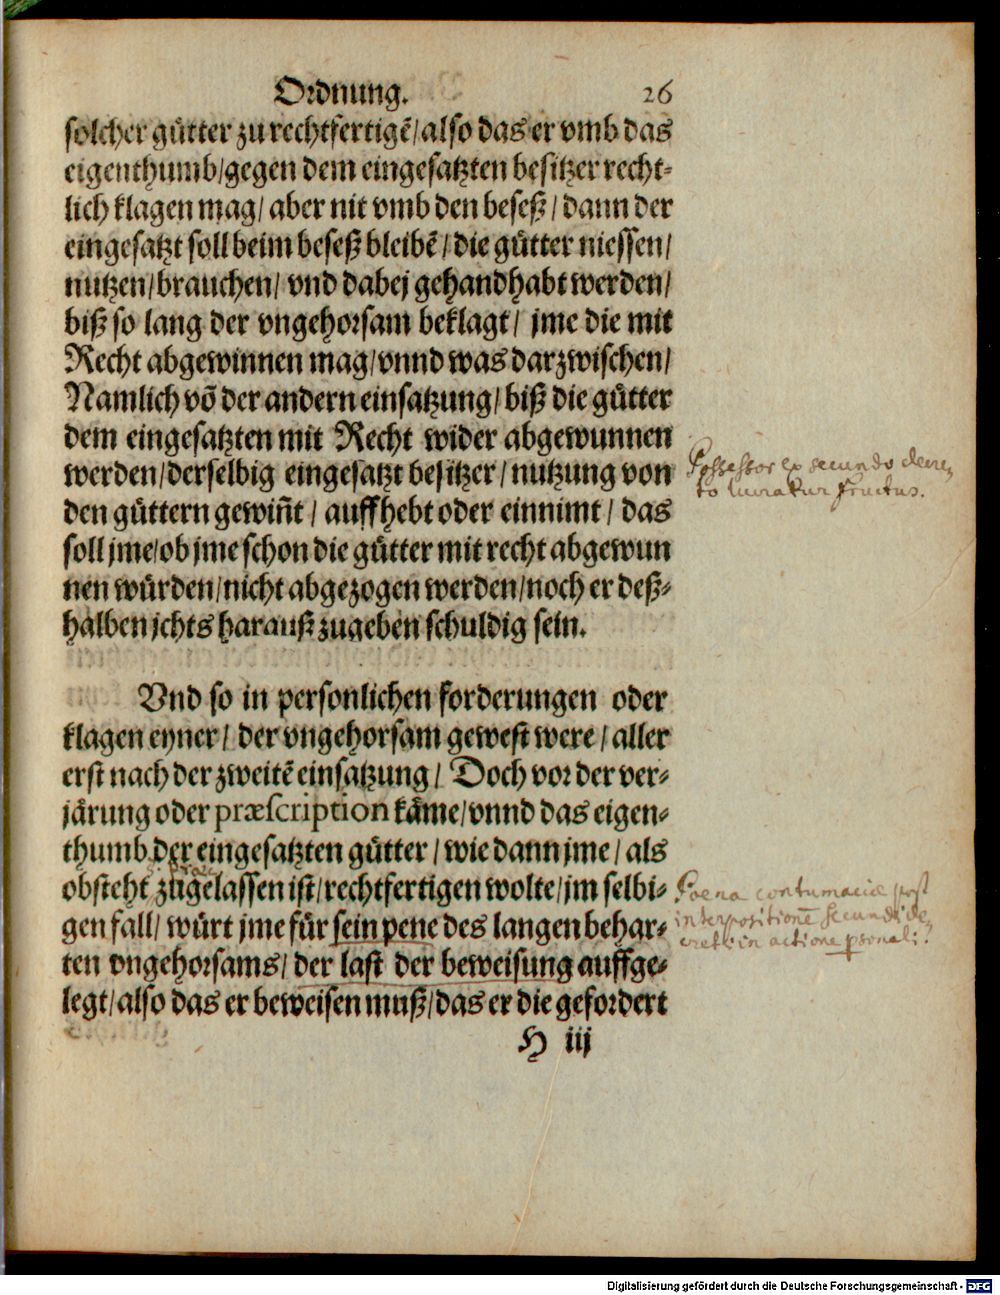 Ordnung. 26
solcher gütter zu rechtfertigē/also das er vmb das
eigenthumb/gegen dem eingesatzten besitzer recht-
lich klagen mag/ aber nit vmb den beseß/ dann der
eingesatzt soll beim beseß bleibē/die gütter niessen/
nutzen/brauchen/ vnd dabej gehandhabt werden/
biß so lang der vngehorsam beklagt/ jme die mit
Recht abgewinnen mag/vnnd was darzwischen/
Namlich vō der andern einsatzung/ biß die gütter
dem eingesatzten mit Recht wider abgewunnen
werden/derselbig eingesatzt besitzer/ nutzung von
den güttern gewiñt/ auffhebt oder einnimt/ das
soll jme/ob jme schon die gütter mit recht abgewun
nen würden/nicht abgezogen werden/noch er deß-
halben ichts harauß zugeben schuldig sein.
Possessor ex secundo decre-
to lucratur fructus.
Vnd so in personlichen forderungen oder
klagen eyner/ der vngehorsam gewest were/aller
erst nach der zweitē einsatzung/ Doch vor der ver-
järung oder præscription käme/vnnd das eigen-
thumb der eingesatzten gütter/wie dann jme/als
obsteht zugelassen ist/rechtfertigen wolte/jm selbi-
gen fall/ würt jme für sein pene des langen behar-
ten vngehorsams/ der last der beweisung auffge-
legt/also das er beweisen muß/das er die gefordert
Poena contumaciæ post
interpositionē secundi de-
creti in actione psonali.
H iij
Digitalisierung gefördert durch die Deutsche Forschungsgemeinschaft - DFG